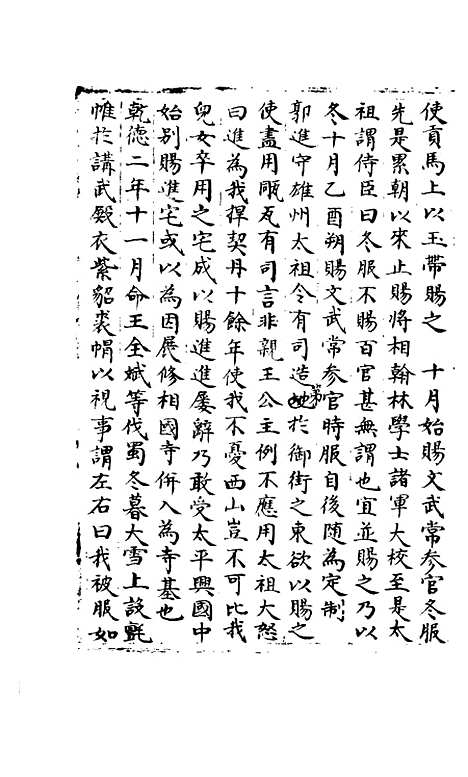 使貢馬上以玉帶賜之　十月始賜文武常參官冬服
先是累朝以來止賜將相翰林學士諸軍大校至是太
祖謂侍臣曰冬服不賜百官甚無謂也宜並賜之乃以
冬十月乙酉朔賜文武常參官時服自後隨為定制
郭進守雄州太祖令有司造第於御街之東欲以賜之
使盡用甋瓦有司言非親王公主例不應用太祖大怒
曰進為我捍契丹十餘年使我不憂西山豈不可比我
兒女卒用之宅成以賜進進屢辭乃敢受太平興國中
始別賜進宅或以為因展修相國寺併入為寺基也
乾德二年十一月命王全斌等伐蜀冬暮大雪上設氈
帷於講武殿衣紫貂裘帽以視事謂左右曰我被服如